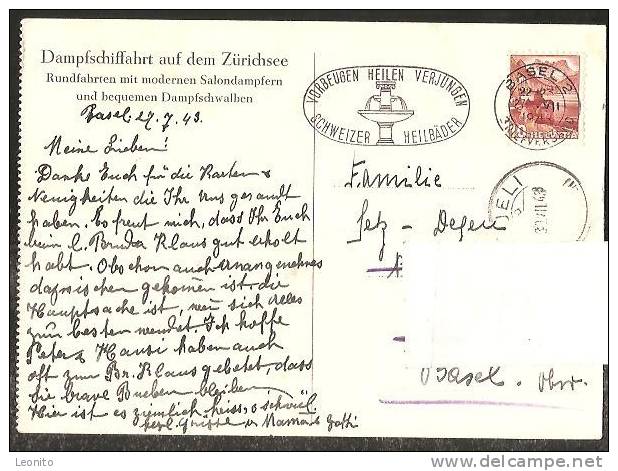 Dampfschiffahrt auf dem Zürichsee
Rundfahrten mit modernen Salondampfern
und bequemen Dampfschwalben
Basel 27.7.43.
Meine Lieben!
Danke Euch für die Karten &
Neuigkeiten die Ihr uns gesandt
haben. Es freut mich, dass Ihr Euch
beim l. Bruder Klaus gut erholt
habt. Obschon auch unangenehmes
dazwischen gekommen ist, die
Hauptsache ist, wenn sich alles
zum besten wendet. Ich hoffe
Peter & Hansi haben auch
oft zum Br. Klaus gebetet, dass
sie brave Bueben bleiben.
Hier ist es ziemlich heiss, & schwül
herzl. Grüsse v. Mama &
VORBEUGEN HEILEN VERJÜNGEN
SCHWEIZER HEILBÄDER
BASEL 2
BRIEFVERSAND
Familie
Setz-Degen
Basel.
Leonito
delcampe.net